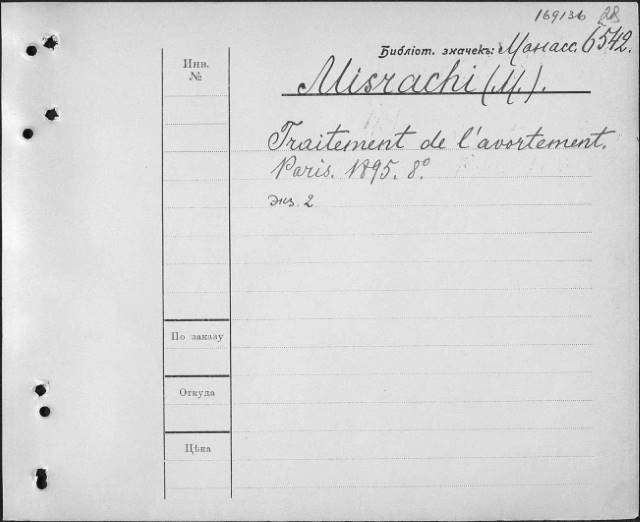 169136 28
Библіот. значекъ: Манасс. 6542.
Инв.
№
Misrachi (M.).
Traitement de l'avortement.
Paris. 1895. 8°
Экз. 2
По заказу
Откуда
Цѣна